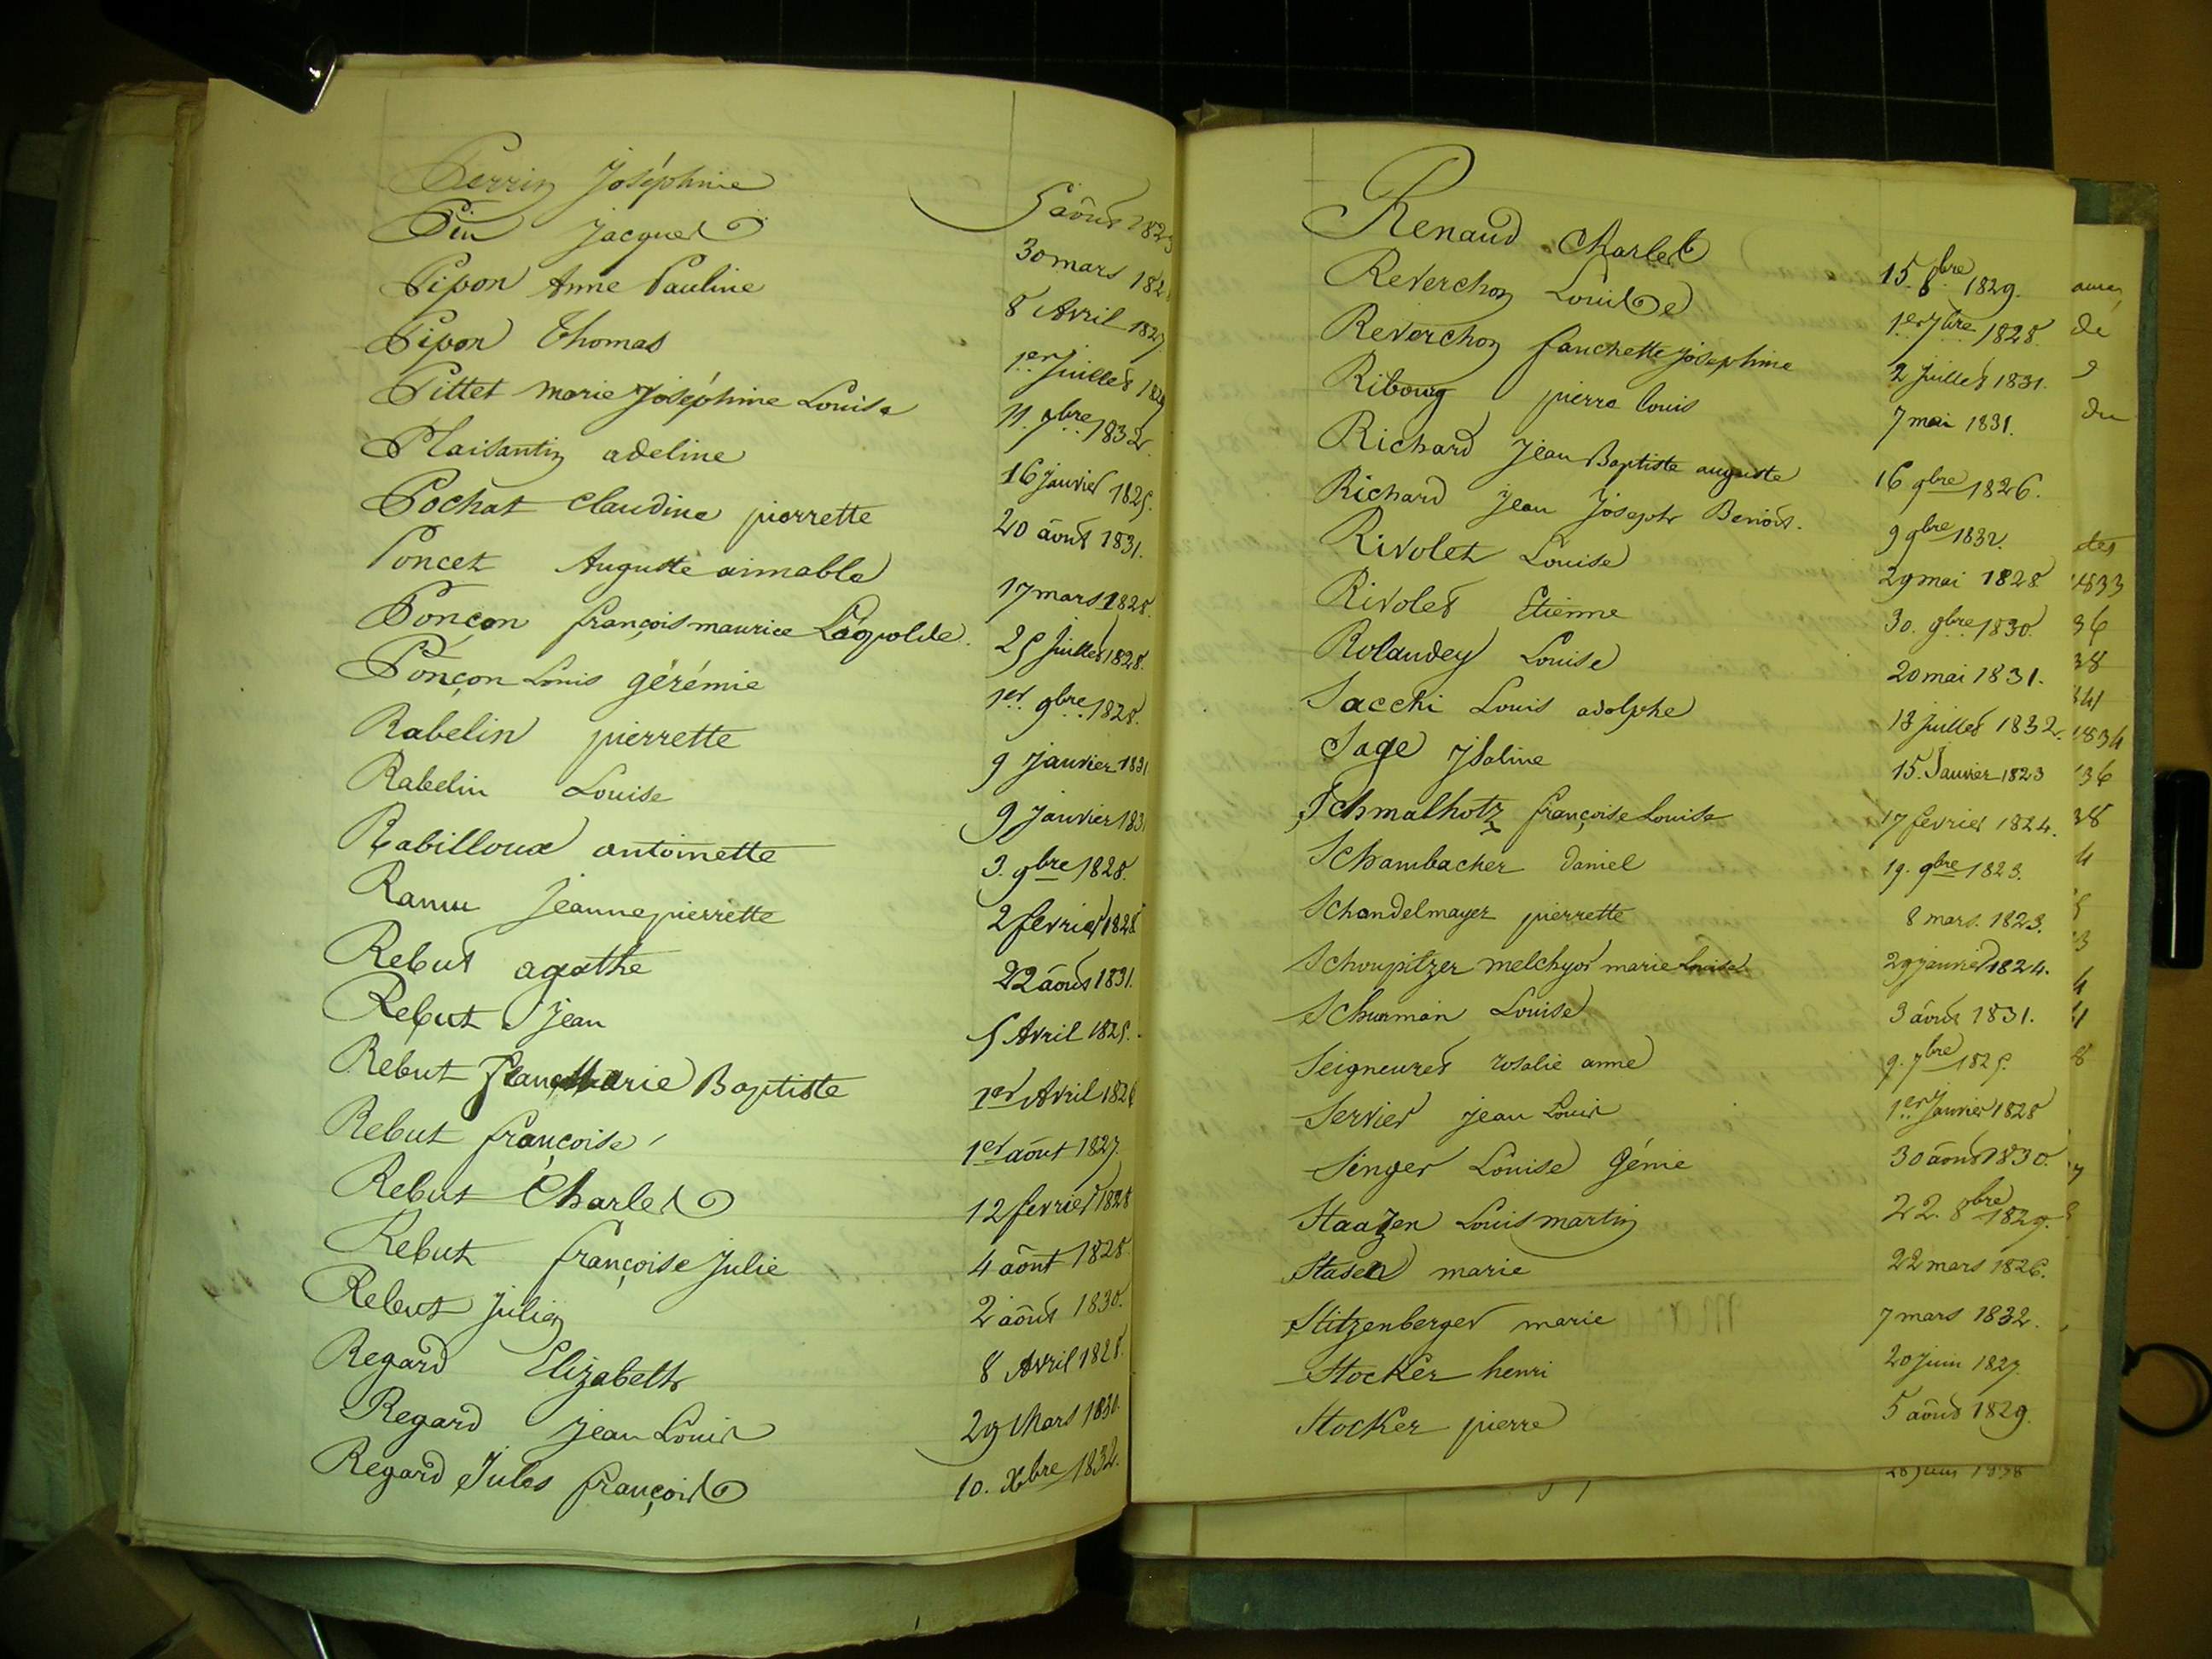 Perrin Joséphine 5 août 1823
Pin Jacques 30 mars 182
Pipon Anne Pauline 8 Avril 1827
Pipon Thomas 1er Juillet 1829
Pittet marie Joséphine Louise 11. 9bre 1832.
Plaisantin adeline 16 janvier 1825.
Pochat Claudine pierrette 20 août 1831.
Poncet Auguste aimable 17 mars 1828.
Ponçon françois maurice Léopolde. 25 Juillet 1828.
Ponçon Louis gérémie 1er. 9bre 1828.
Rabelin pierrette 9 Janvier 1831
Rabelin Louise 9 Janvier 183
Rabilloux antoinette 3. 9bre 1828.
Ramu Jeanne pierrette 2 fevrier 1828
Rebut agathe 22 août 1831.
Rebut Jean 5 Avril 1825.
Rebut marie Baptiste 1er Avril 1826
Rebut françoise 1er août 1827.
Rebut Charles 12 fevrier 1828
Rebut françoise Julie 4 août 1828.
Rebut Julien 2 août 1830.
Regard Elizabeth 8 Avril 1828.
Regard Jean Louis 29 Mars 1830.
Regard Jules françois 10. Xbre 1832.
Renaud Charles 15. 8bre 1829.
Reverchon Louise 1er 7bre 1828.
Reverchon fanchette Josephine 2 Juillet 1831.
Ribourg pierre louis 7 mai 1831.
Richard Jean Baptiste auguste 16 9bre 1826.
Richard Jean Joseph Benoit. 9 9bre 1832.
Rivolet Louise 29 mai 1828.
Rivolet Etienne 30. 9bre 1830.
Rolandey Louise 20 mai 1831.
Sacchi Louis adolphe 13 juillet 1832.
Sage Jsaline 15. Janvier 1823
Schmalhotz françoise Louise 17 fevrier 1824.
Schambacher Daniel 19. 9bre 1823.
Schandelmayer pierrette 8 mars. 1823.
Schoupitzer melchyor marie Louise 29 janvier 1824.
Schurman Louise 3 août 1831.
Seigneuret rosalie anne 9. 7bre 1825.
Servier jean Louis 1er Janvier 1828
Singer Louise Génie 30 août 1830.
Staazen Louis martin 22. 8bre 1829.
Stasen marie 22 mars 1826.
Stitzenberger marie 7 mars 1832.
Stocker henri 20 Juin 1827.
Stocker pierre 5 août 1829.
de
du
des
1833
36
38
41
1834
36
38
4